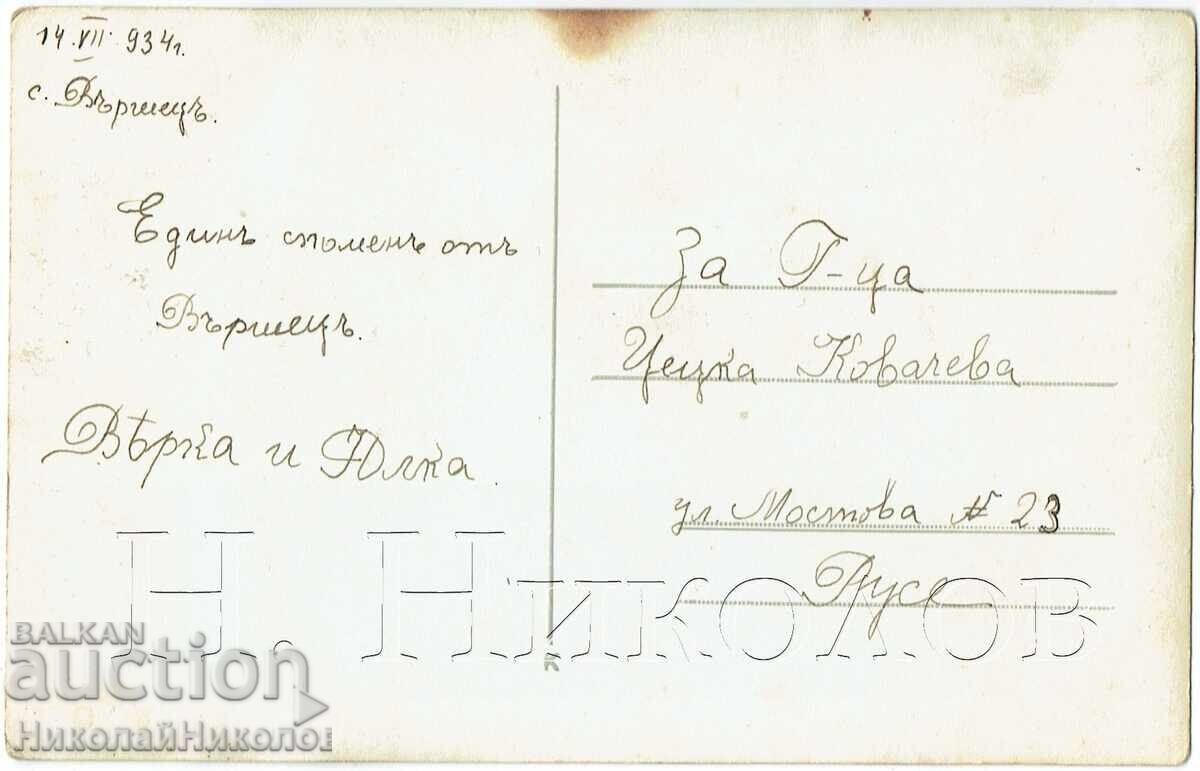 14.VII.934г.
с. Вършецъ.
Единъ споменъ отъ
Вършецъ.
Вѣрка и Юлка.
За Г-ца
Цецка Ковачева
ул. Мостова № 23
Русе
Н. Николов
BALKAN
auction
НиколайНиколов